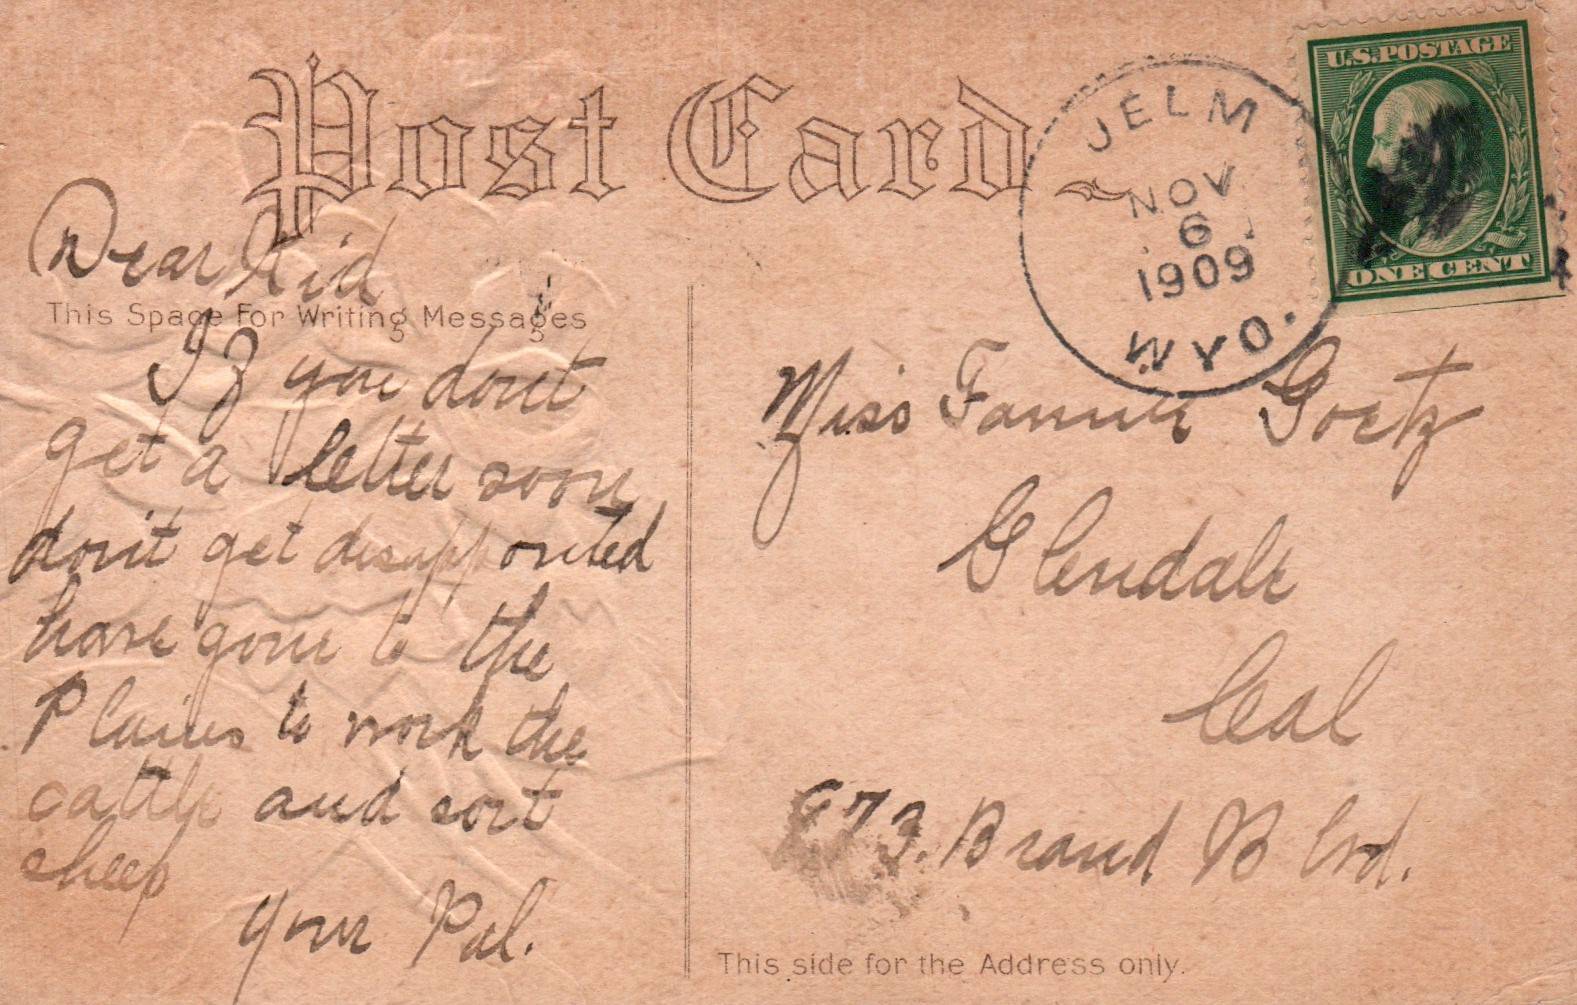 Post Card
JELM
NOV
6
1909
WYO.
U.S. POSTAGE
ONE CENT
Dear Kid
This Space For Writing Messages
If you don't
get a letter soon
don't get disappointed
have gone to the
Plains to work the
cattle and sort
sheep
your Pal.
Miss Fannie Goetz
Glendale
Cal
673. Brand Blvd.
This side for the Address only.